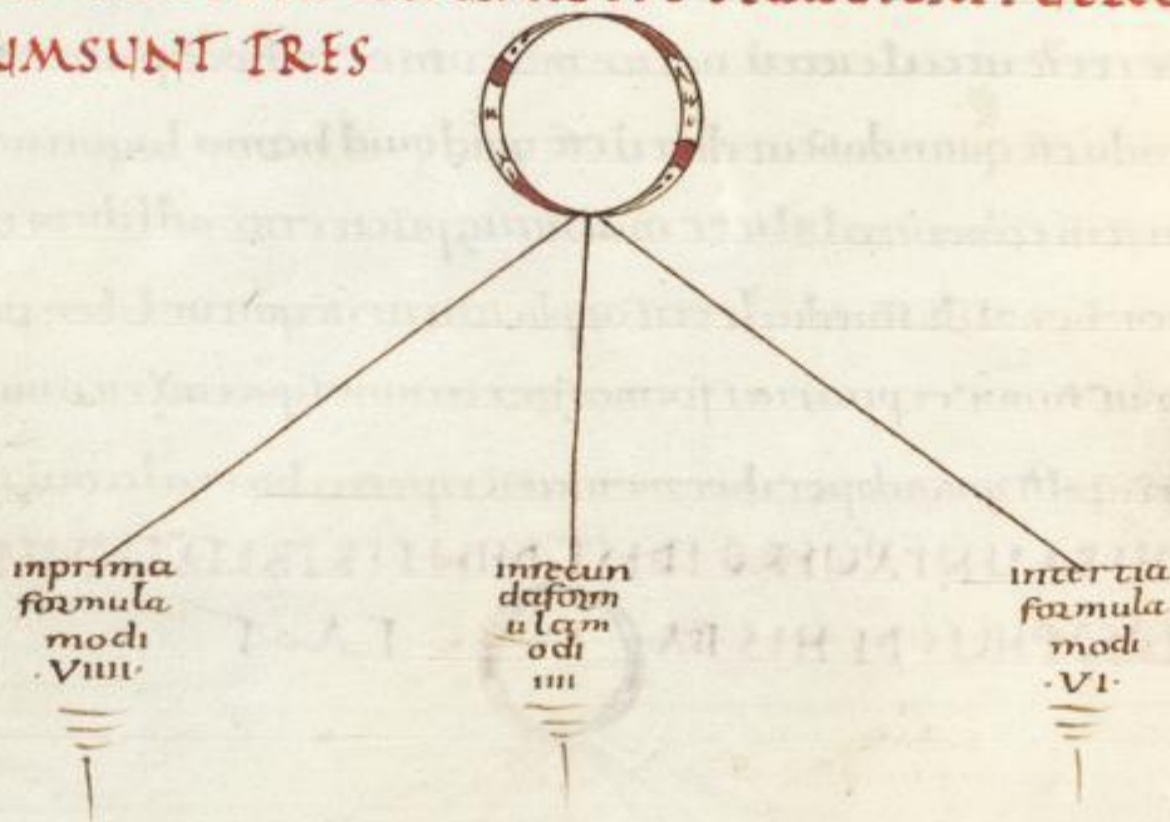 UMSUNT TRES
inprima
formula
modi
·VIIII·
insecun
daform
ulam
odi
IIII
intertia
formula
modi
·VI·